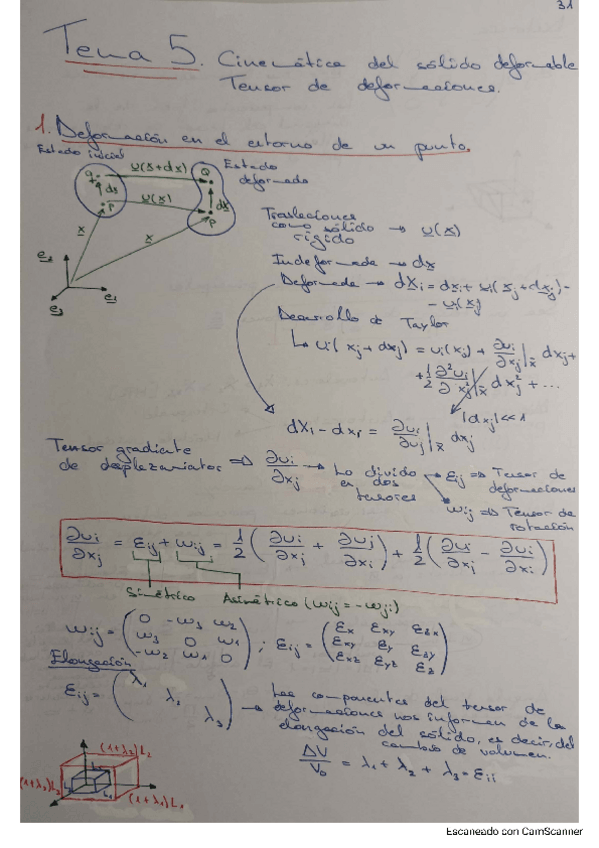 31
Tema 5. Cinemática del sólido deformable
Tensor de deformaciones.
1. Deformación en el entorno de un punto.
Estado inicial
u(x+dx)
Estado
deformado
q
Q
dx
u(x)
dX
P
P
x
x
e₂
e₁
e₃
Traslaciones
como sólido → u(x)
rígido
Indeformada → dx
Deformada → dXi = dxi + ui(xj+dxj) -
- ui(xj)
Desarrollo de Taylor
↳ ui(xj+dxj) = ui(xj) + ∂ui/∂xj|x̄ dxj +
+ 1/2 ∂²ui/∂xj²|x̄ dxj² + ...
|dxj| << 1
dXi - dxi = ∂ui/∂uj|x̄ dxj
Tensor gradiente
de desplazamientos ⇒ ∂ui/∂xj → Lo divido
en dos
tensores
εij ⇒ Tensor de
deformaciones
ωij ⇒ Tensor de
rotación
∂ui/∂xj = εij + ωij = 1/2 (∂ui/∂xj + ∂uj/∂xi) + 1/2 (∂ui/∂xj - ∂ui/∂xi)
Simétrico Asimétrico (ωij = -ωji)
ωij = (0 -ω3 ω2
ω3 0 ω1
-ω2 ω1 0) ; εij = (εx εxy εzx
εxy εy εzy
εxz εyz εz)
Elongación
εij = (λ1
λ2
λ3) → Las componentes del tensor de
deformaciones nos informan de la
elongación del sólido, es decir, del
cambio de volumen.
ΔV/V₀ = λ1 + λ2 + λ3 = εii
(1+λ2)L2
(1+λ3)L3
(1+λ1)L1
Escaneado con CamScanner